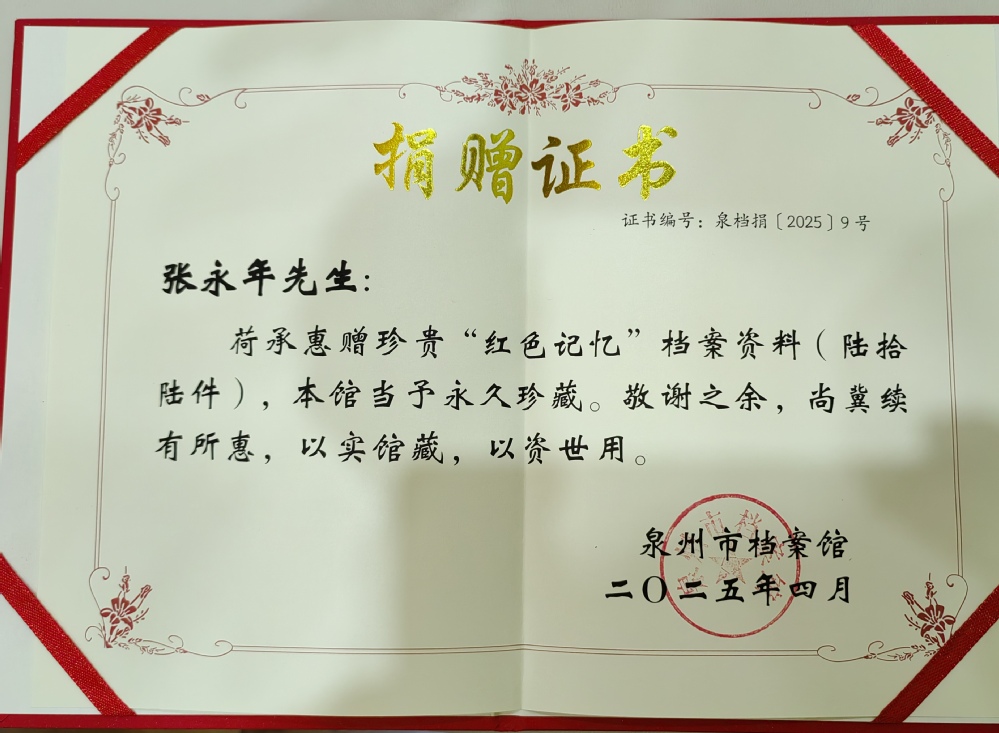 捐赠证书
证书编号：泉档捐〔2025〕9号
张永年先生：
荷承惠赠珍贵“红色记忆”档案资料（陆拾
陆件），本馆当予永久珍藏。敬谢之余，尚冀续
有所惠，以实馆藏，以资世用。
泉州市档案馆
二〇二五年四月